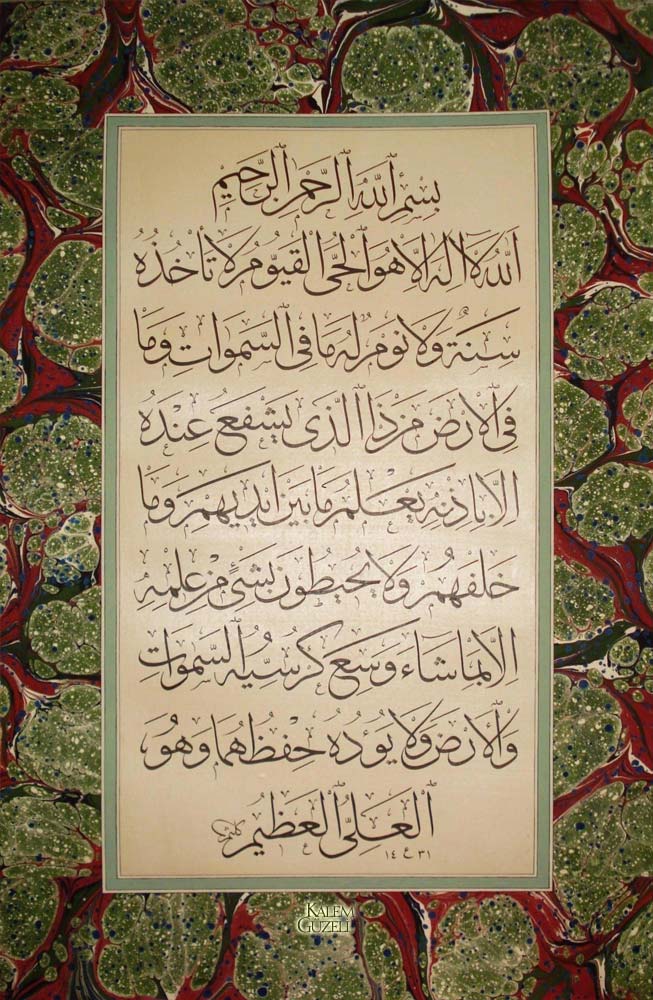 بسم الله الرحمن الرحيم
الله لا اله الا هو الحي القيوم لا تأخذه
سنة ولا نوم له ما في السموات وما
في الارض من ذا الذي يشفع عنده
الا باذنه يعلم ما بين ايديهم وما
خلفهم ولا يحيطون بشئ من علمه
الا بما شاء وسع كرسيه السموات
والارض ولا يؤده حفظهما وهو
العلي العظيم
١٤٣١
KALEM
GUZELI